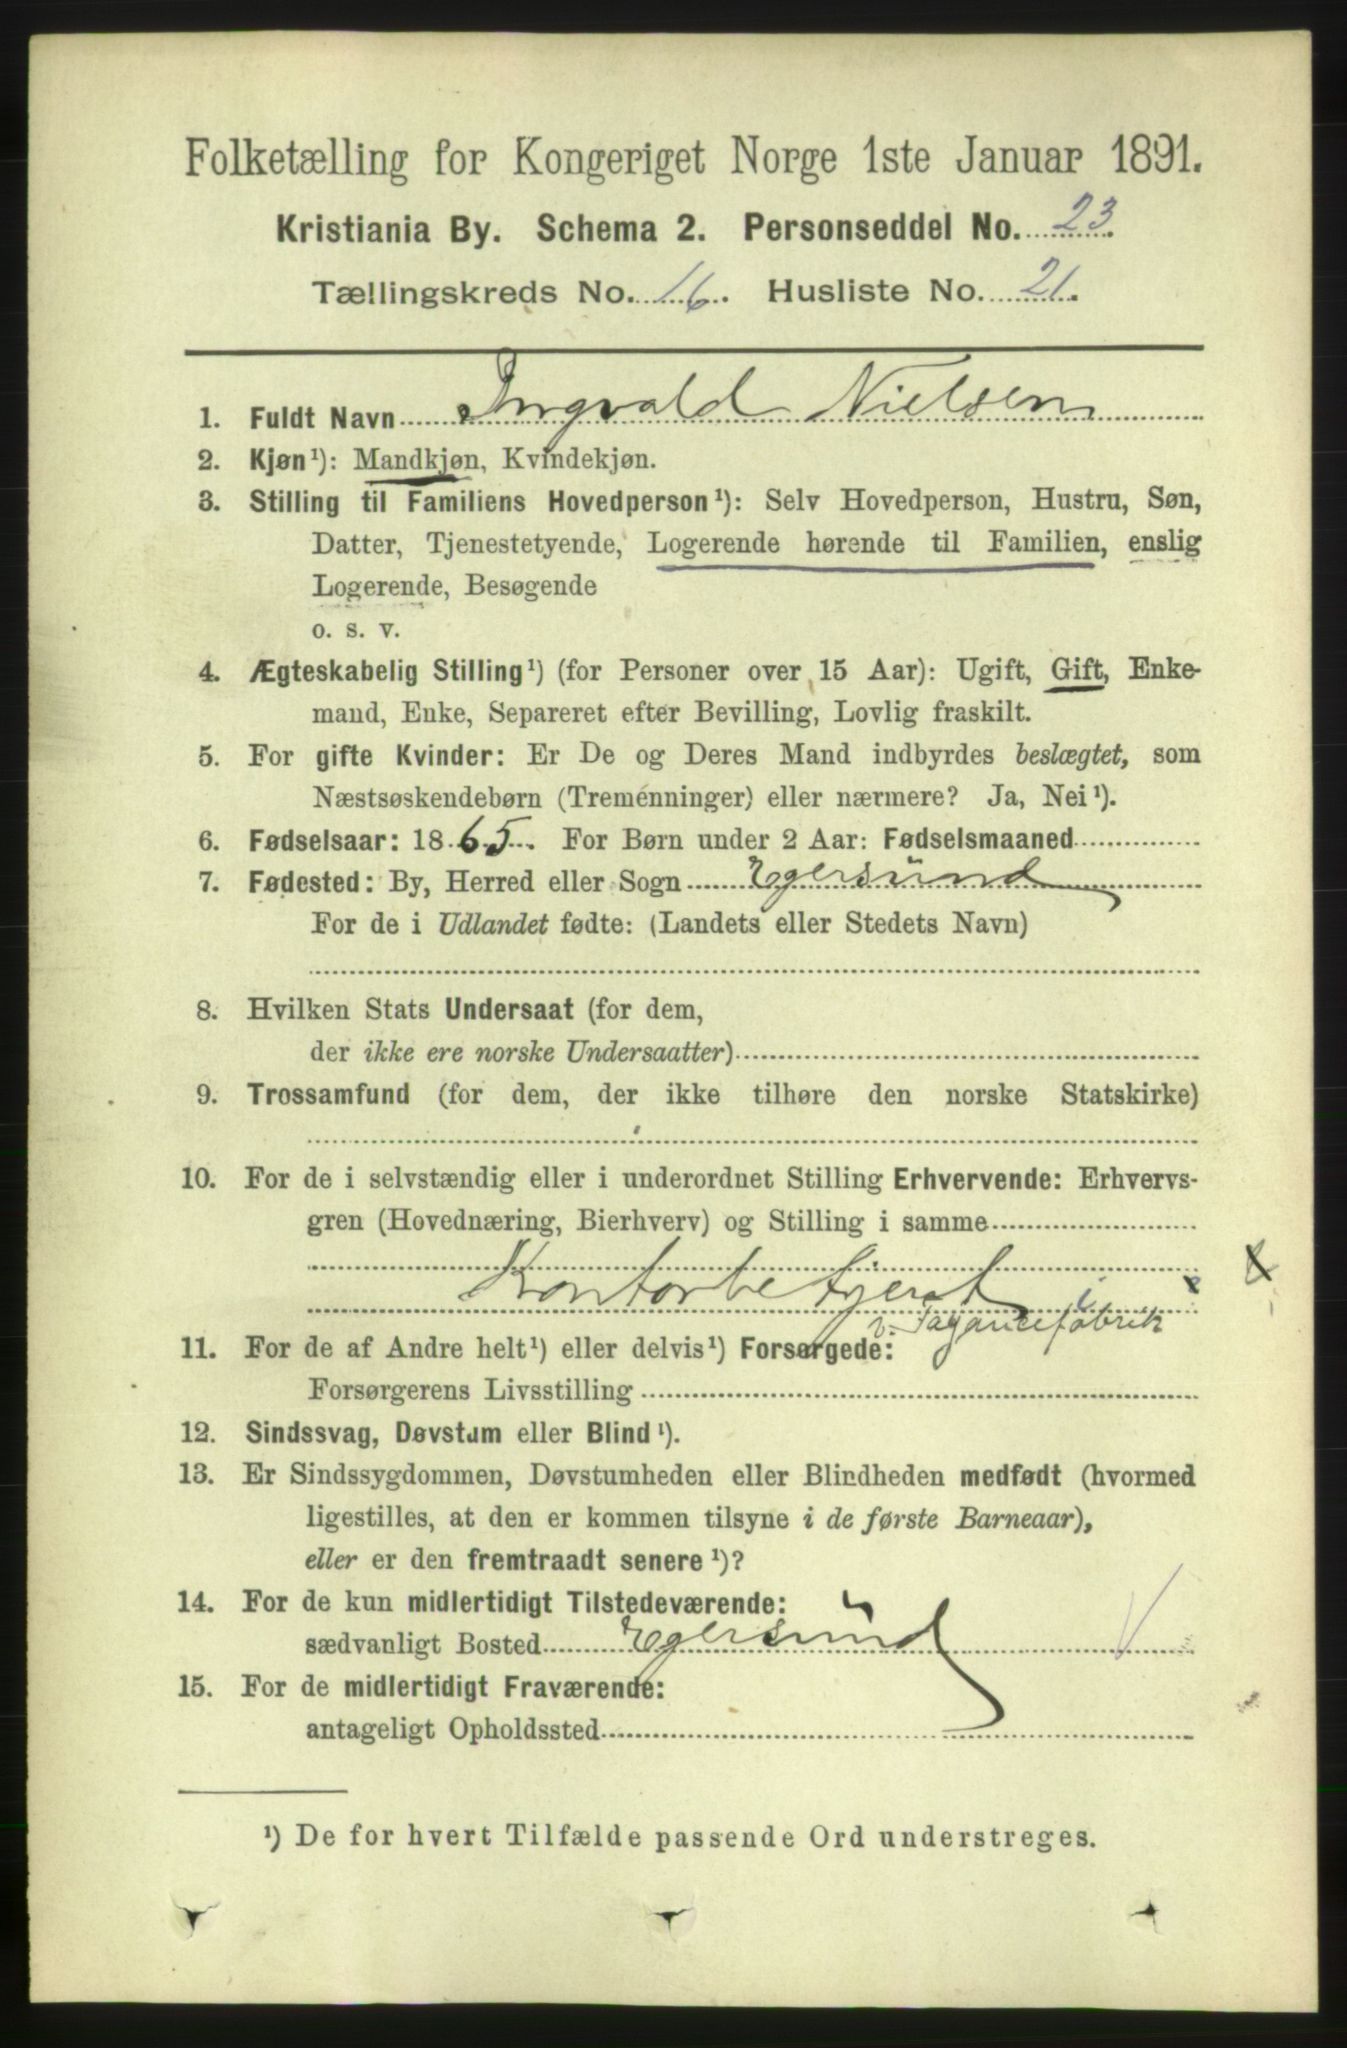 Folketælling for Kongeriget Norge 1ste Januar 1891.
Kristiania By. Schema 2. Personseddel No. 23.
Tællingskreds No. 16. Husliste No. 21.
1. Fuldt Navn Ingvald Nielsen
2. Kjøn¹): Mandkjøn, Kvindekjøn.
3. Stilling til Familiens Hovedperson¹): Selv Hovedperson, Hustru, Søn,
Datter, Tjenestetyende, Logerende hørende til Familien, enslig
Logerende, Besøgende
o. s. v.
4. Ægteskabelig Stilling¹) (for Personer over 15 Aar): Ugift, Gift, Enke-
mand, Enke, Separeret efter Bevilling, Lovlig fraskilt.
5. For gifte Kvinder: Er De og Deres Mand indbyrdes beslægtet, som
Næstsøskendebørn (Tremenninger) eller nærmere? Ja, Nei¹).
6. Fødselsaar: 1865. For Børn under 2 Aar: Fødselsmaaned
7. Fødested: By, Herred eller Sogn Egersund
For de i Udlandet fødte: (Landets eller Stedets Navn)
8. Hvilken Stats Undersaat (for dem,
der ikke ere norske Undersaatter)
9. Trossamfund (for dem, der ikke tilhøre den norske Statskirke)
10. For de i selvstændig eller i underordnet Stilling Erhvervende: Erhvervs-
gren (Hovednæring, Bierhverv) og Stilling i samme
Kontorbetjent i
v. Fayancefabrik
11. For de af Andre helt¹) eller delvis¹) Forsørgede:
Forsørgerens Livsstilling
12. Sindssvag, Døvstum eller Blind¹).
13. Er Sindssygdommen, Døvstumheden eller Blindheden medfødt (hvormed
ligestilles, at den er kommen tilsyne i de første Barneaar),
eller er den fremtraadt senere¹)?
14. For de kun midlertidigt Tilstedeværende:
sædvanligt Bosted Egersund
15. For de midlertidigt Fraværende:
antageligt Opholdssted
¹) De for hvert Tilfælde passende Ord understreges.